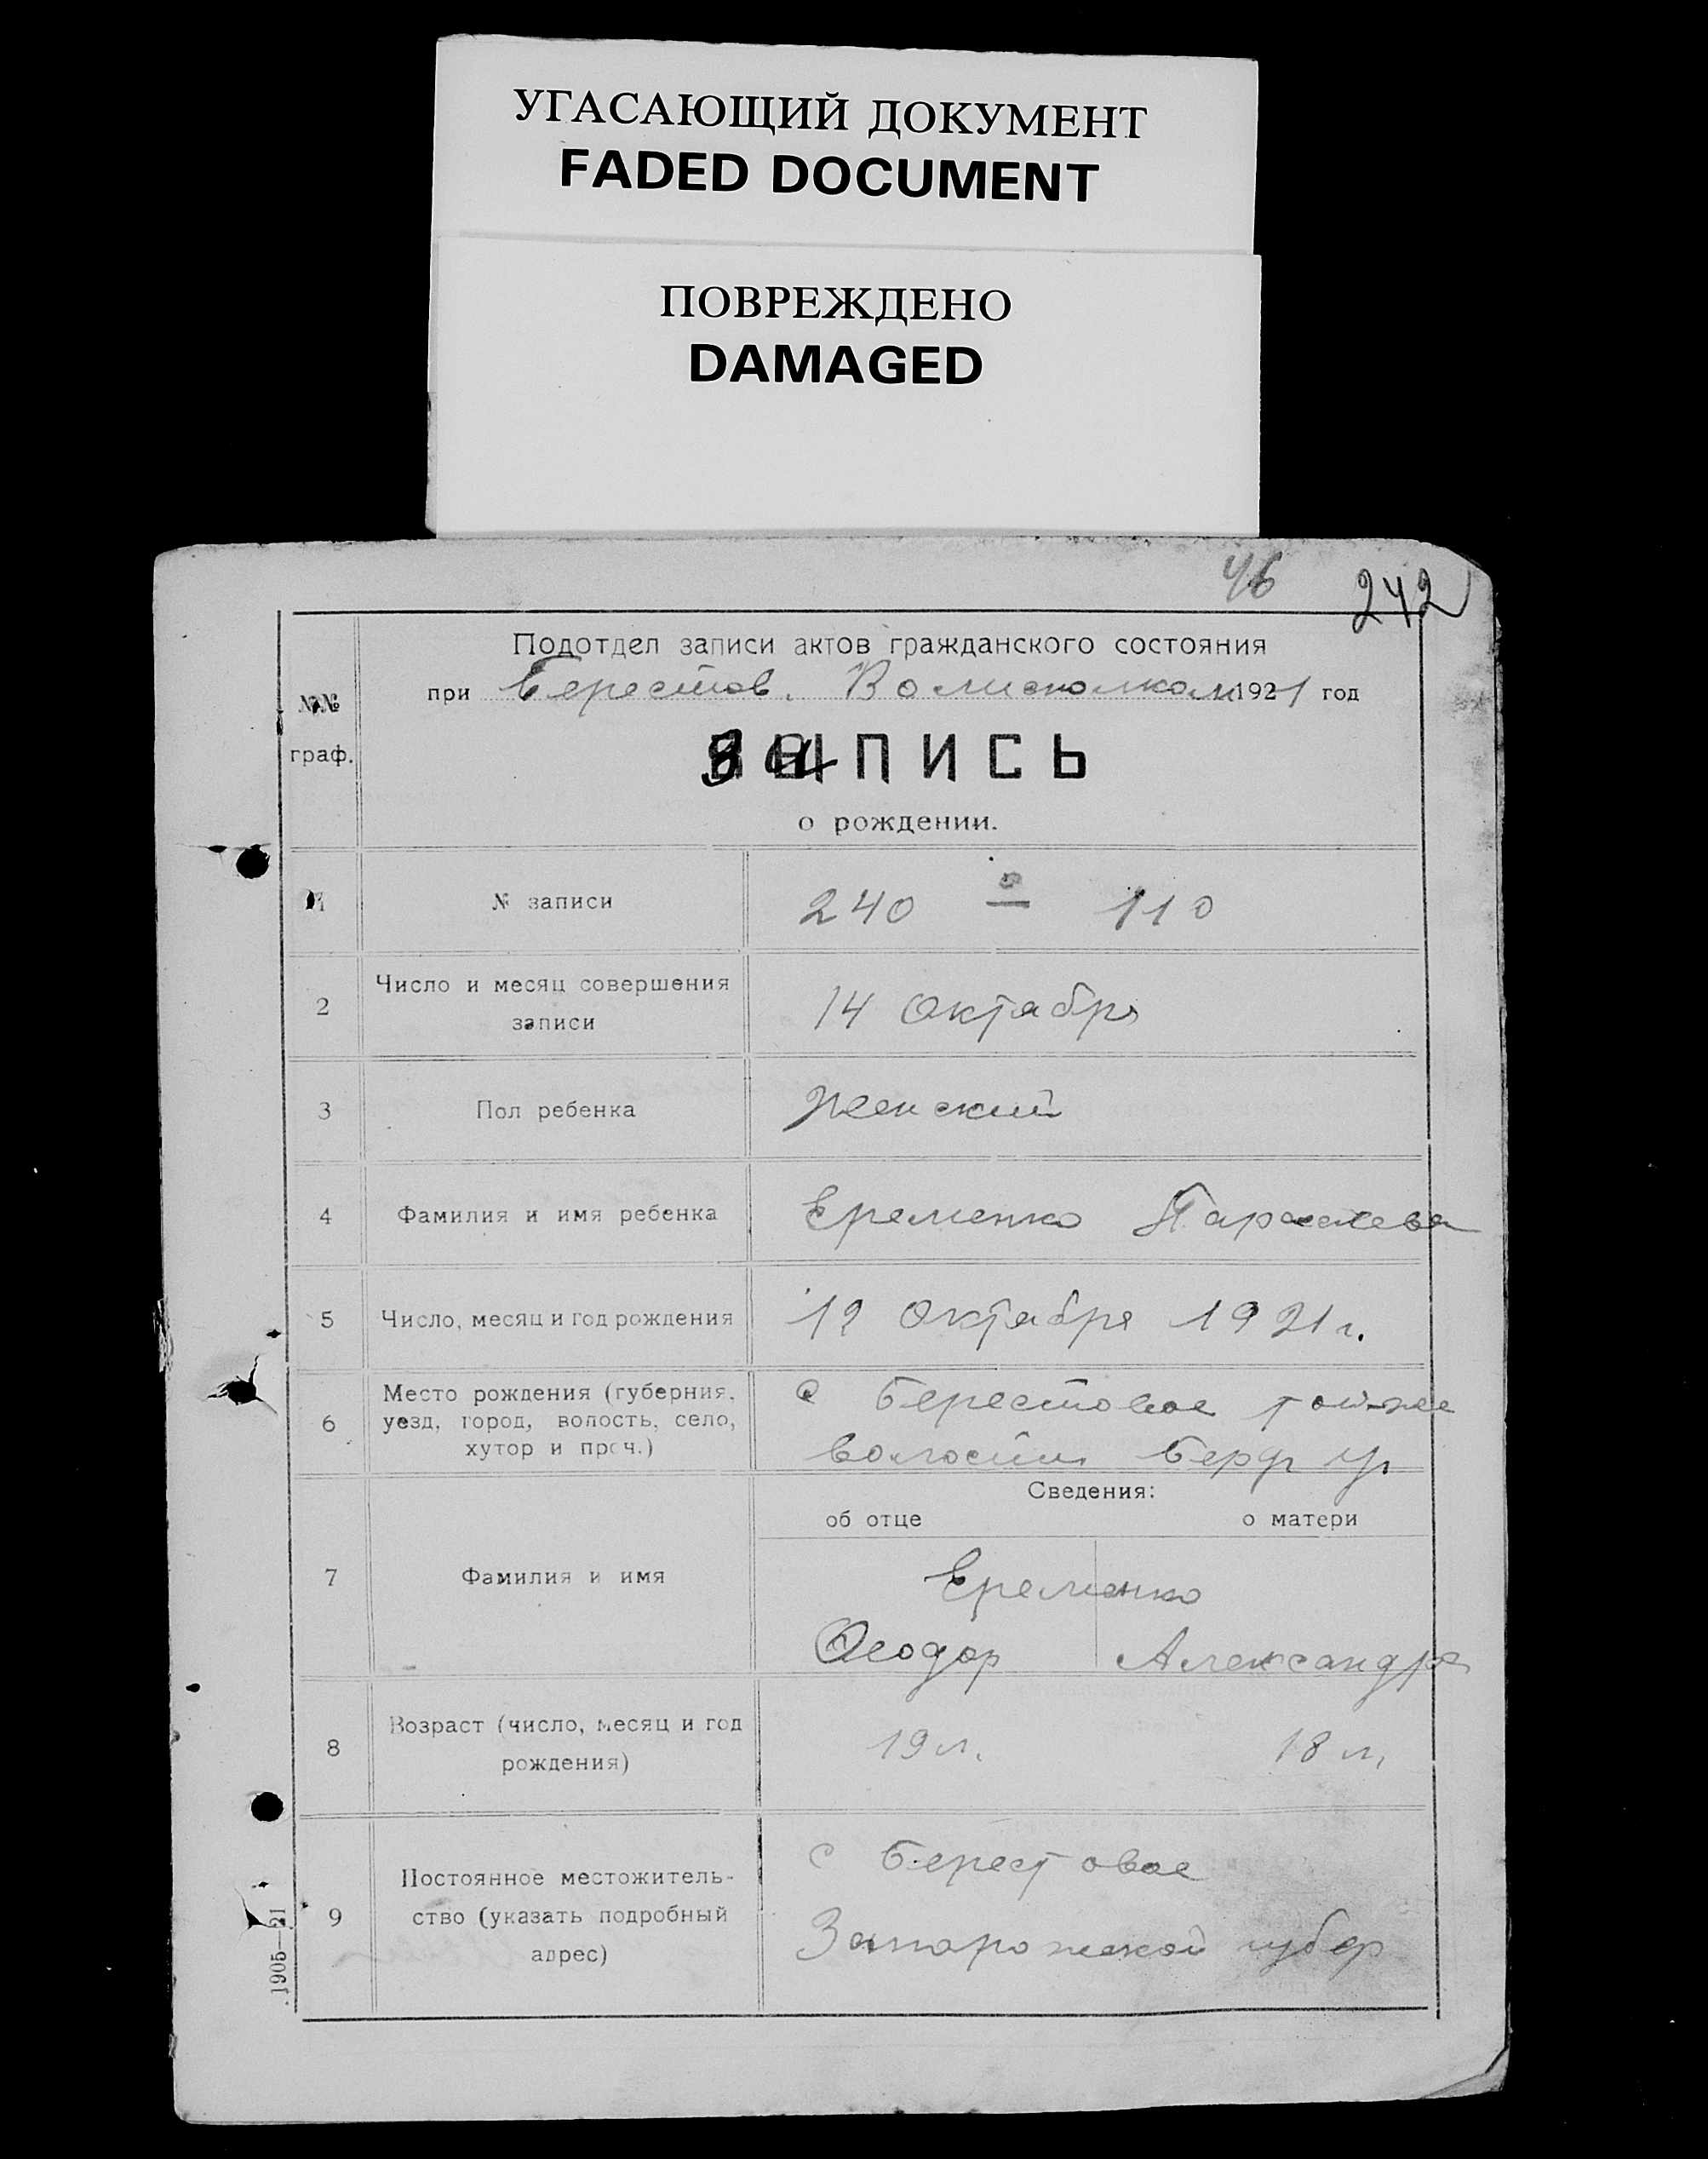 УГАСАЮЩИЙ ДОКУМЕНТ
FADED DOCUMENT
ПОВРЕЖДЕНО
DAMAGED
46 242
Подотдел записи актов гражданского состояния
№№ граф.
при Берестов. Волисполком 1921 год
ЗАПИСЬ
о рождении.
1 № записи 240 110
2 Число и месяц совершения записи 14 Октября
3 Пол ребенка женский
4 Фамилия и имя ребенка Еременко Параскева
5 Число, месяц и год рождения 12 октября 1921 г.
6 Место рождения (губерния, уезд, город, волость, село, хутор и проч.)
с Берестовое той-же
волости Берд у
Сведения:
об отце о матери
7 Фамилия и имя
Еременко
Феодор Александра
8 Возраст (число, месяц и год рождения) 19 л. 18 л.
9 Постоянное местожитель-
ство (указать подробный
адрес)
с Берестовое
Запорожской губер
1905—21